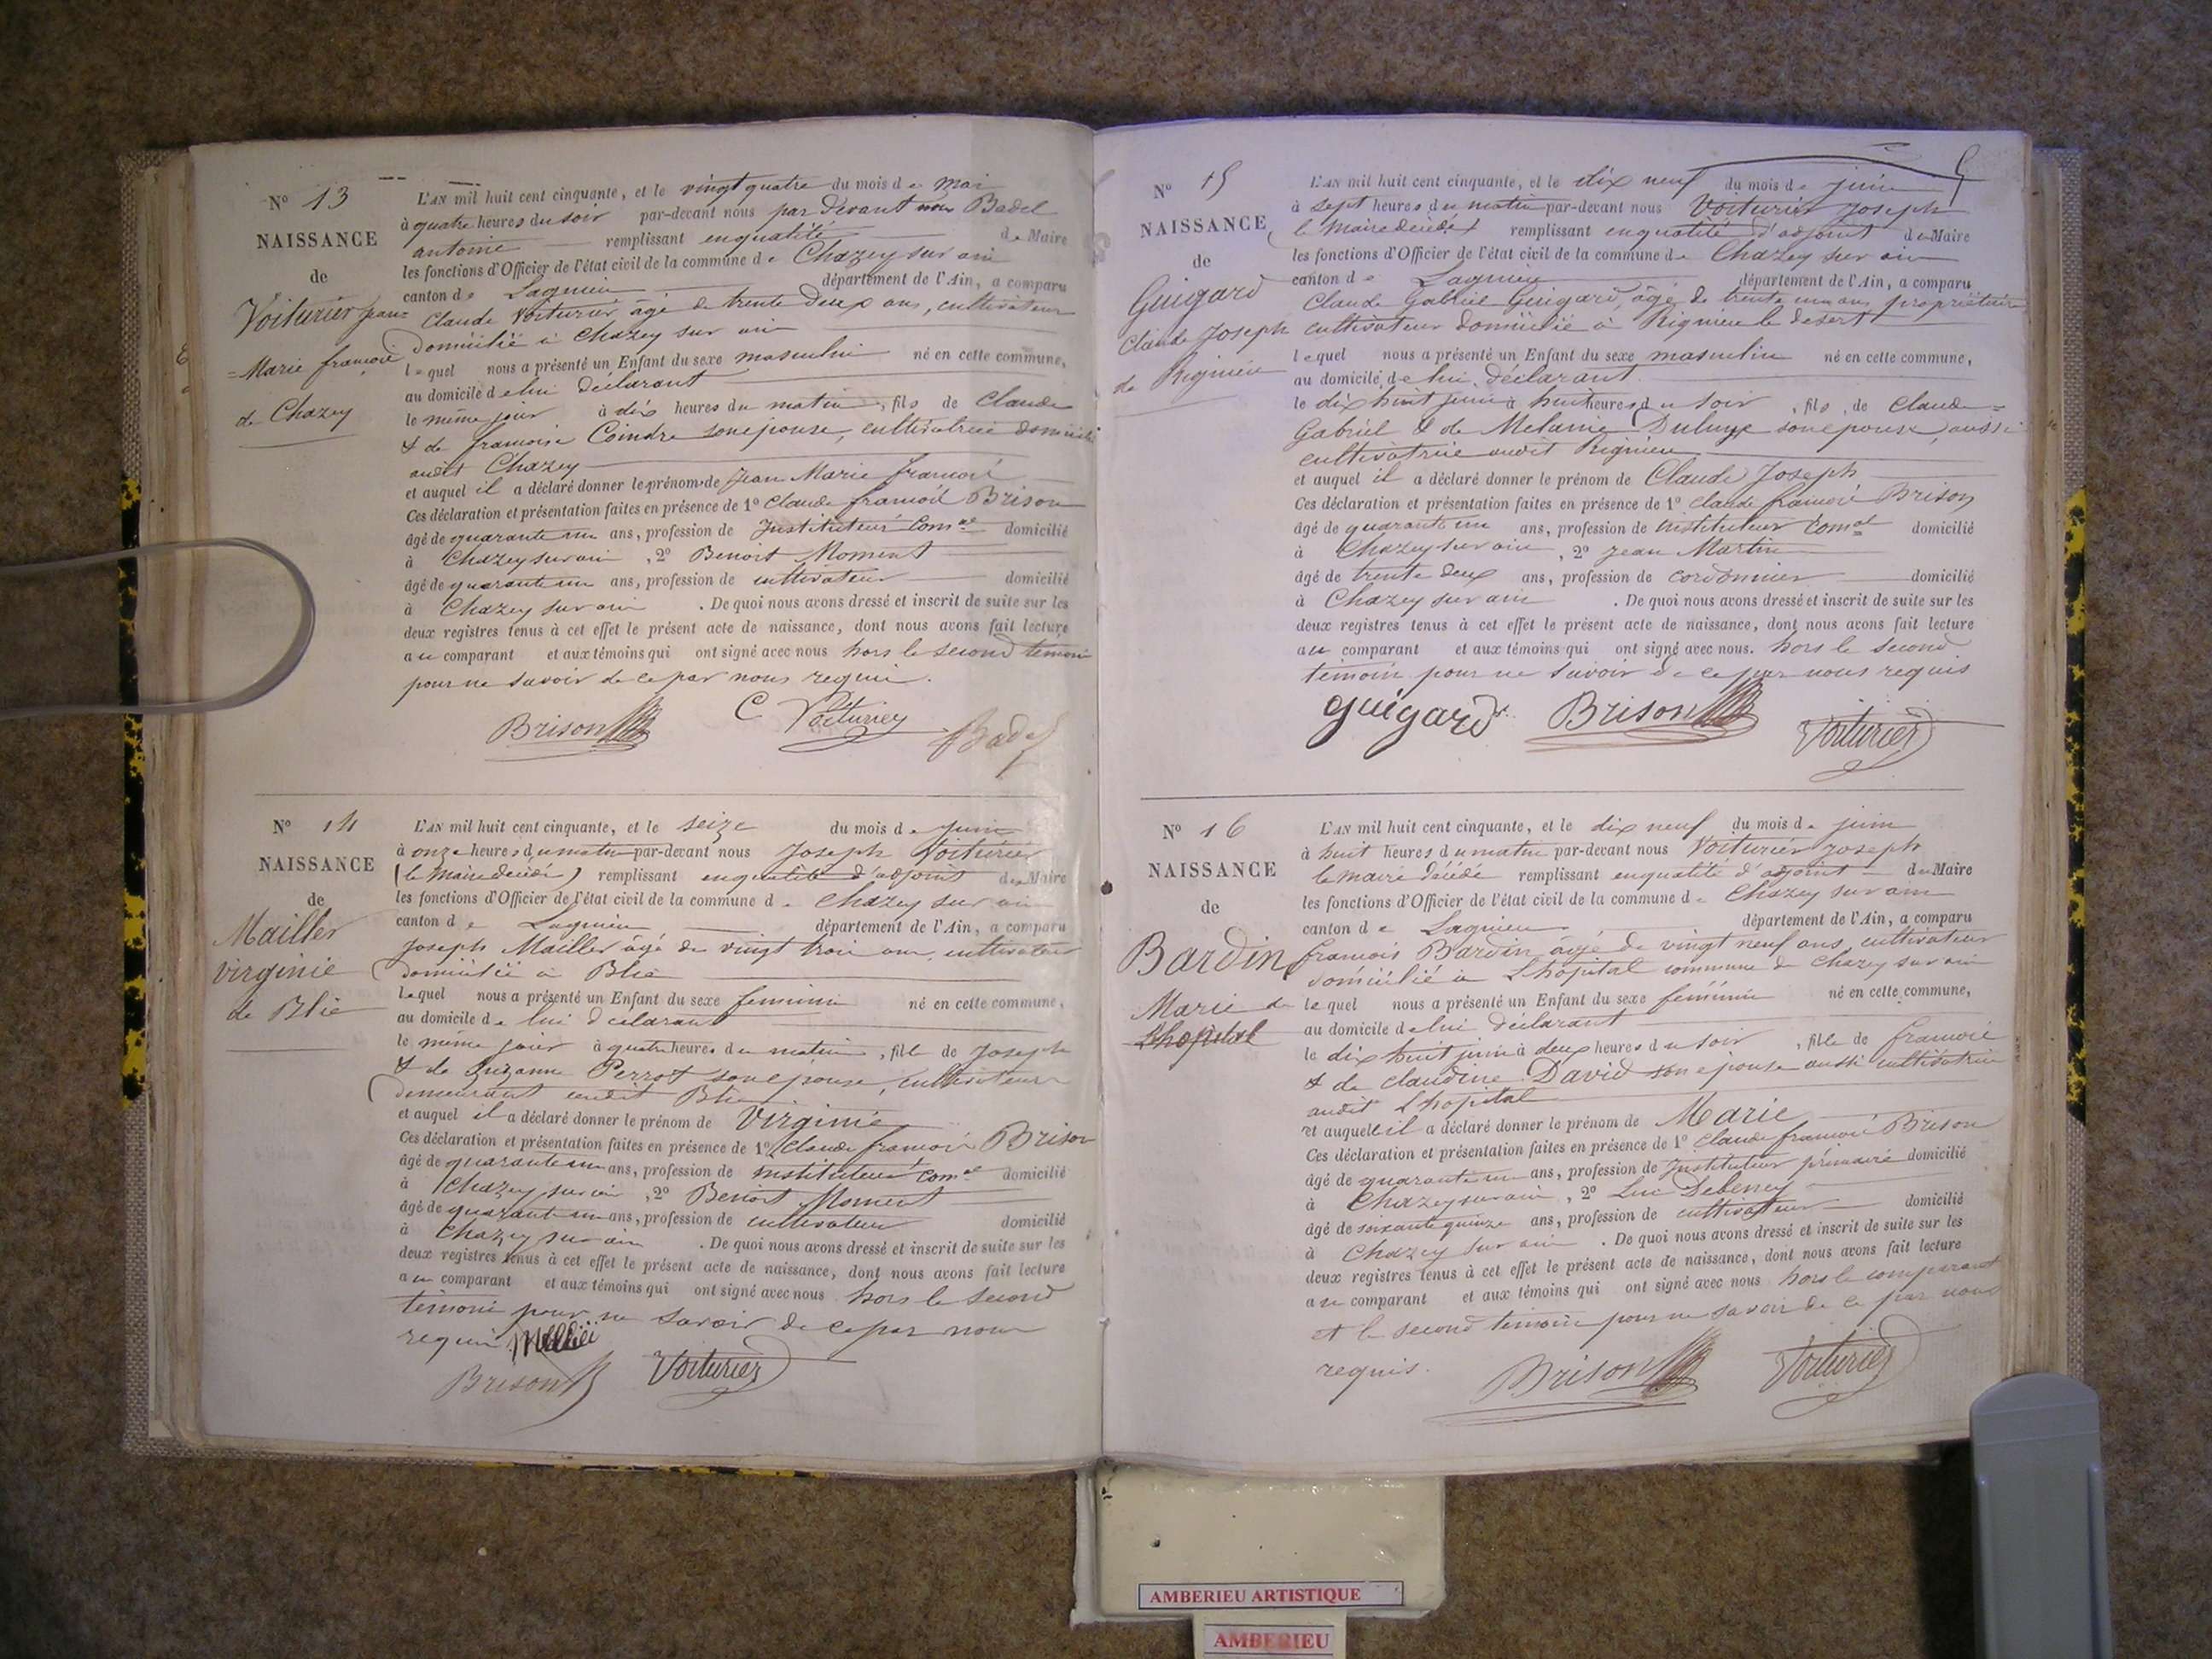 N° 13
NAISSANCE
de
Voiturier jean=
=Marie françois
de Chazey
L'AN mil huit cent cinquante, et le vingt quatre du mois de mai
à quatre heures du soir par-devant nous par devant nous Badel
antoine remplissant en qualité de Maire
les fonctions d'Officier de l'état civil de la commune de Chazey sur ain
canton de Lagnieu département de l'Ain, a comparu
Claude Voiturier âgé de trente deux ans, cultivateur
domicilié à Chazey sur ain
lequel nous a présenté un Enfant du sexe masculin né en cette commune,
au domicile de lui déclarant
le même jour à dix heures du matin, fils de Claude
& de françoise Coindre son épouse, cultivatrice domicilié
audit Chazey
et auquel il a déclaré donner le prénom de Jean Marie françois
Ces déclaration et présentation faites en présence de 1° Claude françois Brison
âgé de quarante un ans, profession de Instituteur Comal domicilié
à Chazey sur ain, 2° Benoit Moment
âgé de quarante un ans, profession de cultivateur domicilié
à Chazey sur ain. De quoi nous avons dressé et inscrit de suite sur les
deux registres tenus à cet effet le présent acte de naissance, dont nous avons fait lecture
au comparant et aux témoins qui ont signé avec nous hors le second témoin
pour ne savoir de ce par nous requis.
Brison C Voiturier Badel
N° 14
NAISSANCE
de
Mailler
virginie
de Blie
L'AN mil huit cent cinquante, et le seize du mois de juin
à onze heures du matin par-devant nous Joseph Voiturier
(le Maire décédé) remplissant en qualité d'adjoint du Maire
les fonctions d'Officier de l'état civil de la commune de Chazey sur ain
canton de Lagnieu département de l'Ain, a comparu
Joseph Mailler âgé de vingt trois ans, cultivateur
domicilié à Blie
lequel nous a présenté un Enfant du sexe feminin né en cette commune,
au domicile de lui déclarant
le même jour à quatre heures du matin, fille de Joseph
& de Suzanne Perrot son épouse, cultivateurs
demeurant audit Blie
et auquel il a déclaré donner le prénom de Virginie
Ces déclaration et présentation faites en présence de 1° Claude françois Brison
âgé de quarante un ans, profession de instituteur Comal domicilié
à Chazey sur ain, 2° Benoit Moment
âgé de quarante un ans, profession de cultivateur domicilié
à Chazey sur ain. De quoi nous avons dressé et inscrit de suite sur les
deux registres tenus à cet effet le présent acte de naissance, dont nous avons fait lecture
au comparant et aux témoins qui ont signé avec nous hors le second
témoin pour ne savoir de ce par nous
requis
Brison Voiturier
N° 15
NAISSANCE
de
Guigard
Claude Joseph
de Rignieu
L'AN mil huit cent cinquante, et le dix neuf du mois de juin
à sept heures du matin par-devant nous Voiturier Joseph
(le Maire décédé) remplissant en qualité d'adjoint du Maire
les fonctions d'Officier de l'état civil de la commune de Chazey sur ain
canton de Lagnieu département de l'Ain, a comparu
Claude Gabriel Guigard, âgé de trente un ans propriétaire
cultivateur domicilié à Rignieu le desert
lequel nous a présenté un Enfant du sexe masculin né en cette commune,
au domicile de lui, déclarant
le dix huit juin à huit heures du soir, fils, de Claude=
Gabriel & de Melanie son épouse, aussi
cultivatrice audit Rignieu
et auquel il a déclaré donner le prénom de Claude Joseph
Ces déclaration et présentation faites en présence de 1° Claude françois Brison
âgé de quarante un ans, profession de instituteur Comal domicilié
à Chazey sur ain, 2° Jean Martin
âgé de trente deux ans, profession de cordonnier domicilié
à Chazey sur ain. De quoi nous avons dressé et inscrit de suite sur les
deux registres tenus à cet effet le présent acte de naissance, dont nous avons fait lecture
au comparant et aux témoins qui ont signé avec nous. hors le second
témoin pour ne savoir de ce par nous requis
guigard Brison Voiturier
N° 16
NAISSANCE
de
Bardin
Marie de
Lhopital
L'AN mil huit cent cinquante, et le dix neuf du mois de juin
à huit heures du matin par-devant nous Voiturier Joseph
le maire décédé remplissant en qualité d'adjoint du Maire
les fonctions d'Officier de l'état civil de la commune de Chazey sur ain
canton de Lagnieu département de l'Ain, a comparu
françois Bardin âgé de vingt neuf ans, cultivateur
domicilié à Lhopital commune de Chazey sur ain
lequel nous a présenté un Enfant du sexe féminin né en cette commune,
au domicile de lui déclarant
le dix huit juin à deux heures du soir, fille de françois
& de claudine David son épouse aussi cultivatrice
audit Lhopital
et auquelle il a déclaré donner le prénom de Marie
Ces déclaration et présentation faites en présence de 1° Claude françois Brison
âgé de quarante un ans, profession de Instituteur primaire domicilié
à Chazey sur ain, 2° Luc Debeney
âgé de soixante quinze ans, profession de cultivateur domicilié
à Chazey sur ain. De quoi nous avons dressé et inscrit de suite sur les
deux registres tenus à cet effet le présent acte de naissance, dont nous avons fait lecture
au comparant et aux témoins qui ont signé avec nous hors le comparant
et le second témoin pour ne savoir de ce par nous
requis.
Brison Voiturier
AMBERIEU ARTISTIQUE
AMBERIEU